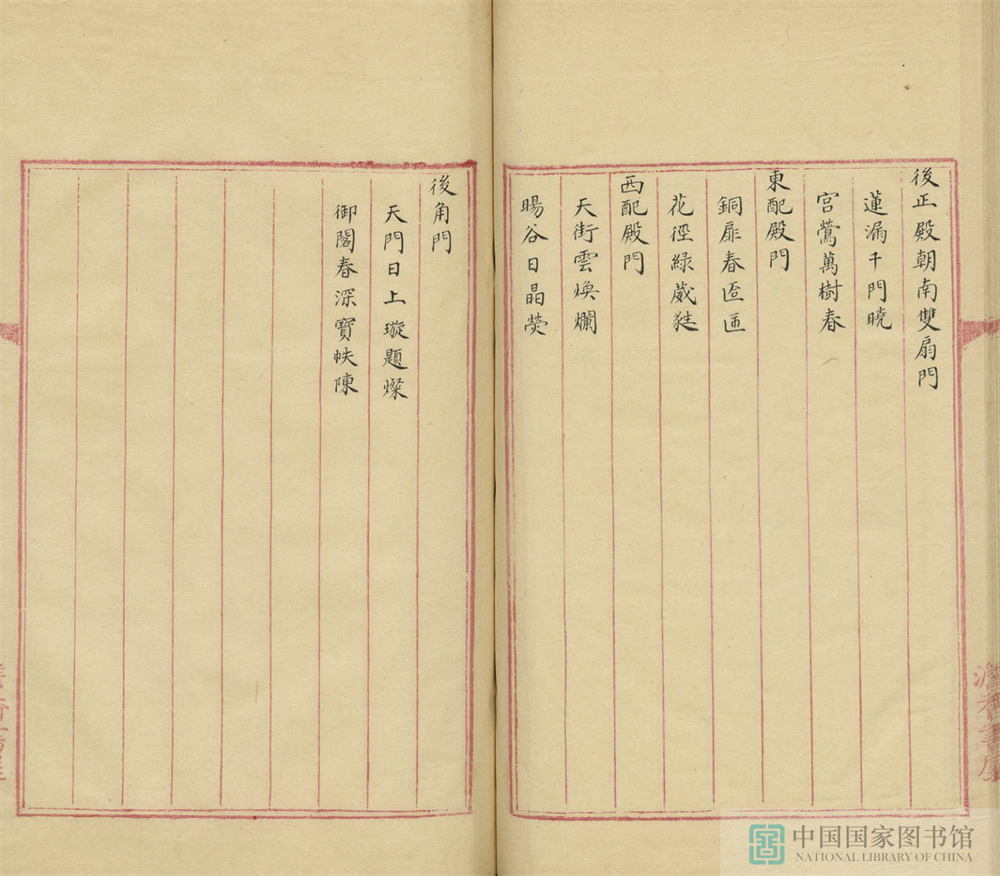 後正殿朝南雙扇門
蓮漏千門曉
宮鶯萬樹春
東配殿門
銅扉春匼匝
花徑綠葳蕤
西配殿門
天街雲煥爛
暘谷日晶熒
後角門
天門日上璇題燦
御閣春深寶帙陳
中国国家图书馆
NATIONAL LIBRARY OF CHINA